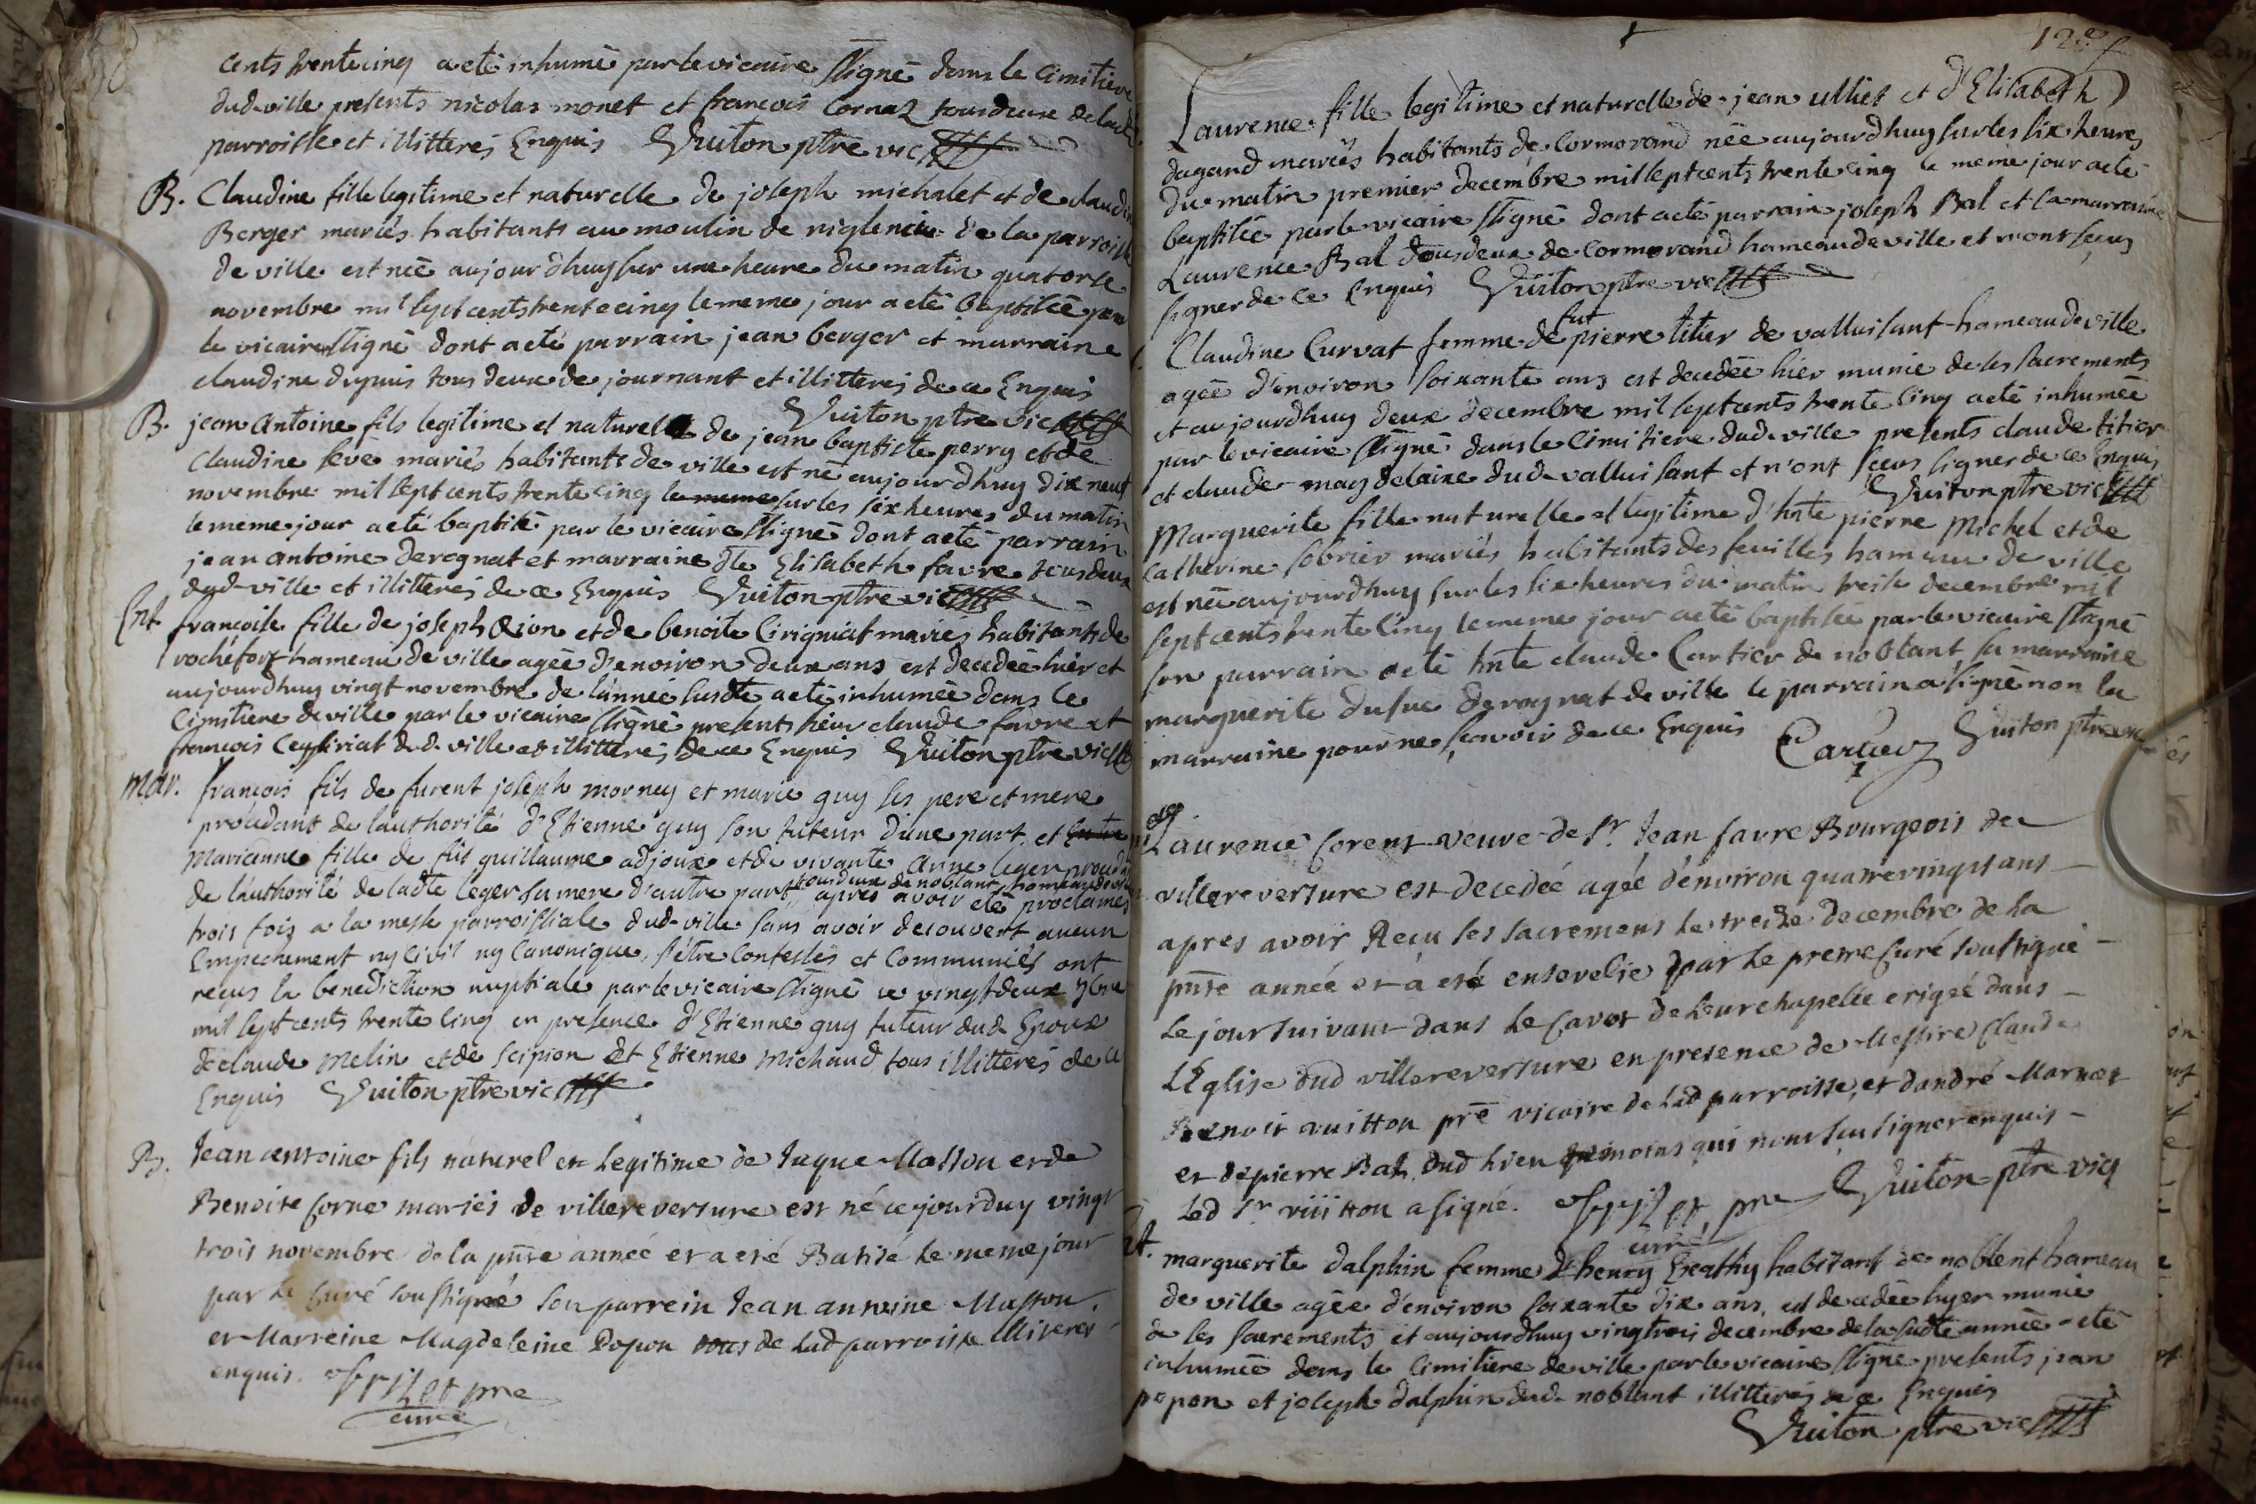 cents trente cinq a eté inhumé par le vicaire ssigné dans le Cimitiere
dud. ville presents nicolas monet et francois Cornaz tous deux de lad.
parroisse et illitterés Enquis Vuiton ptre vic
B. Claudine fille legitime et naturelle de joseph michalet et de claudine
Berger mariés habitants au moulin de de la parroisse
de ville est neé aujourdhuy sur une heure du matin quatorse
novembre mil sept cents trente cinq le meme jour a eté baptiseé par
le vicaire ssigné dont a eté parrain jean berger et marraine
claudine dupuis tous deux de journant et illitterés de ce Enquis
Vuiton ptre vic
B. jean Antoine fils legitime et naturel de jean baptiste perry et de
Claudine seve mariés habitants de ville est né aujourdhuy dix neuf
novembre mil sept cents trente cinq le meme sur les six heures du matin
le meme jour a eté baptisé par le vicaire ssigné dont a eté parrain
jean antoine derognat et marraine dlle Elisabeth favre tous deux
dud. ville et illitterés de ce Enquis Vuiton ptre vic
Ent. francoise fille de joseph et de benoite Cirigniat mariés habitants de
rochefort hameau de ville ageé d'environ deux ans est decedeé hier et
aujourdhuy vingt novembre de l'anneé susdte a eté inhumeé dans le
Cimitiere de ville par le vicaire ssigné presents sieur claude favre et
francois Ceyssiriat dud. ville et illitterés de ce Enquis Vuiton ptre vic
Mar. francois fils de furent joseph mornay et marie guy ses pere et mere
procedant de lauthorité d'Etienne guy son tuteur d'une part et Entre
Marianne fille de fut guillaume adjoux et de vivante anne leger procedant
de l'authorité de ladte leger sa mere d'autre part tous deux de noblant hameau de ville apres avoir eté proclamés
trois fois a la messe parroissiale dud. ville sans avoir decouvert aucun
Empechement ny Civil ny Canonique, s'etre Confessés et Communiés ont
recus la benediction nuptiale par le vicaire ssigné ce vingt deux 9bre
mil sept cents trente cinq en presence d'Etienne guy tuteur dud. Epoux
de claude Melin et de Scipion et Etienne Michaud tous illitterés de ce
Enquis Vuiton ptre vic
B. Jean antoine fils naturel et legitime de Jaque Masson et de
Benoite Corne mariés de villereversure est né cejourduy vingt
trois novembre de la pnte année et a eté Batisé le meme jour
par le Curé soussigné son parrein Jean antoine Masson
et Marreine Magdeleine Popon tous de lad parroisse Illiterés
enquis. pre
curé
12e f
Laurence fille legitime et naturelle de jean ulliet et d'Elisabeth
dagand mariés habitants de Cormorand neé aujourdhuy sur les six heures
du matin premier decembre mil sept cents trente cinq le meme jour a eté
baptiseé par le vicaire ssigné dont a eté parrain joseph Bal et la marraine
Laurence Bal tous deux de Cormorand hameau de ville et n'ont sceus
signer de ce Enquis Vuiton ptre vic
Claudine Curvat femme de fut pierre titier de valluisant hameau de ville
ageé d'environ soixante ans est decedeé hier munie de ses sacrements
et aujourdhuy deux decembre mil sept cents trente cinq a eté inhumeé
par le vicaire ssigné dans le Cimitiere dud. ville presents claude titier
et claude may delaine dud. valluisant et n'ont sceus signer de ce Enquis
Vuiton ptre vic
Marguerite fille naturelle et legitime d'hnte pierre Michel et de
Catherine sobrier mariés habitants des feuilles hameau de ville
est neé aujourdhuy sur les six heures du matin treise decembre mil
sept cents trente cinq le meme jour a eté baptiseé par le vicaire ssigné
son parrain a eté hnte claude Cartier de noblant sa marraine
marguerite dufue derognat de ville le parrain a signé non la
marraine pour ne scavoir de ce Enquis Cartier Vuiton ptre vic
Laurence Corent veuve de Sr. Jean favre Bourgeois de
villereversure est decedeé ageé d'environ quatrevingts ans
apres avoir Reçu ses sacremens le treize decembre de la
pnte année et a eté ensevelie par le pretre curé soussigné
le jour suivant dans le cavot de leur chapelle erigeé dans
L'Eglise dud villereversure en presence de Messire Claude
Benoit vuitton pre vicaire de lad parroisse, et d'andré Marnet
et de pierre Bal dud lieu temoins qui n'ont scu signer enquis
Led Sr. vuitton a signé. pre Vuiton ptre vic
curé
marguerite dalphin femme d'henry habitant de noblent hameau
de ville agée d'environ soixante dix ans, est decedeé hyer munie
de ses sacrements et aujourdhuy vingtrois decembre de la susdte anneé a eté
inhumeé dans le Cimitiere de ville par le vicaire ssigné presents jean
popon et joseph dalphin dud. noblant illitterés de ce Enquis
Vuiton ptre vic